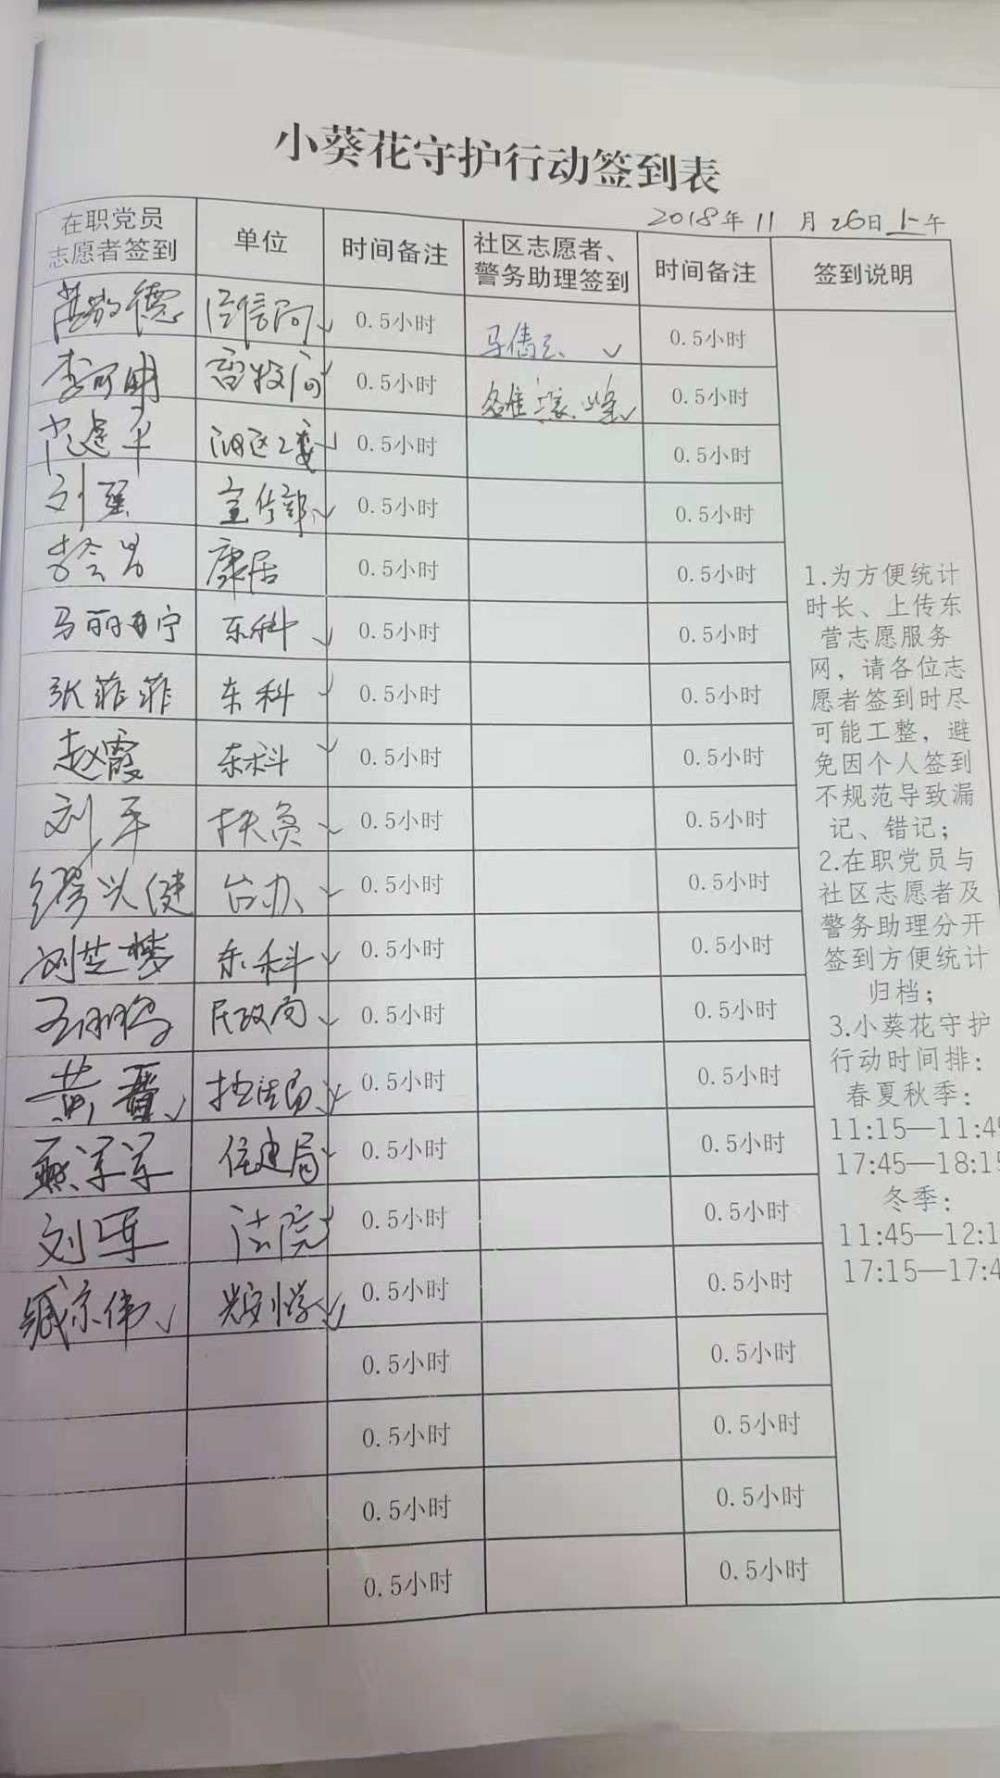 小葵花守护行动签到表
2018年11月26日上午
在职党员志愿者签到 单位 时间备注 社区志愿者、警务助理签到 时间备注 签到说明
0.5小时 马倩云 0.5小时
0.5小时 0.5小时
0.5小时 0.5小时
刘强 宣传部 0.5小时 0.5小时
康居 0.5小时 0.5小时
东科 0.5小时 0.5小时
张菲菲 东科 0.5小时 0.5小时
赵霞 东科 0.5小时 0.5小时
刘军 0.5小时 0.5小时
缪兴健 台办 0.5小时 0.5小时
刘芝梦 东科 0.5小时 0.5小时
民政局 0.5小时 0.5小时
黄 0.5小时 0.5小时
燕军军 住建局 0.5小时 0.5小时
刘军 法院 0.5小时 0.5小时
臧京伟 0.5小时 0.5小时
0.5小时 0.5小时
0.5小时 0.5小时
0.5小时 0.5小时
0.5小时 0.5小时
1.为方便统计
时长、上传东
营志愿服务
网，请各位志
愿者签到时尽
可能工整，避
免因个人签到
不规范导致漏
记、错记；
2.在职党员与
社区志愿者及
警务助理分开
签到方便统计
归档；
3.小葵花守护
行动时间排：
春夏秋季：
11:15—11:4
17:45—18:1
冬季：
11:45—12:1
17:15—17:4